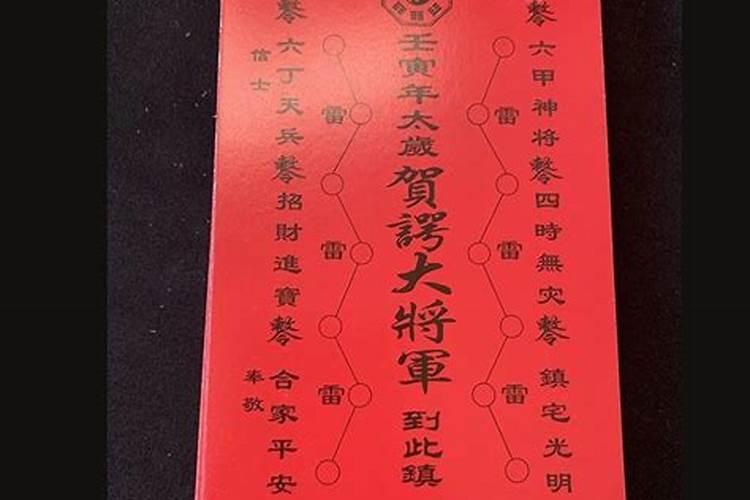 六甲神將 四時無灾 鎮宅光明
雷
雷
雷
壬寅年太歲賀諤大將軍到此鎮
雷
雷
雷
六丁天兵 招財進寶 合家平安
信士 奉敬